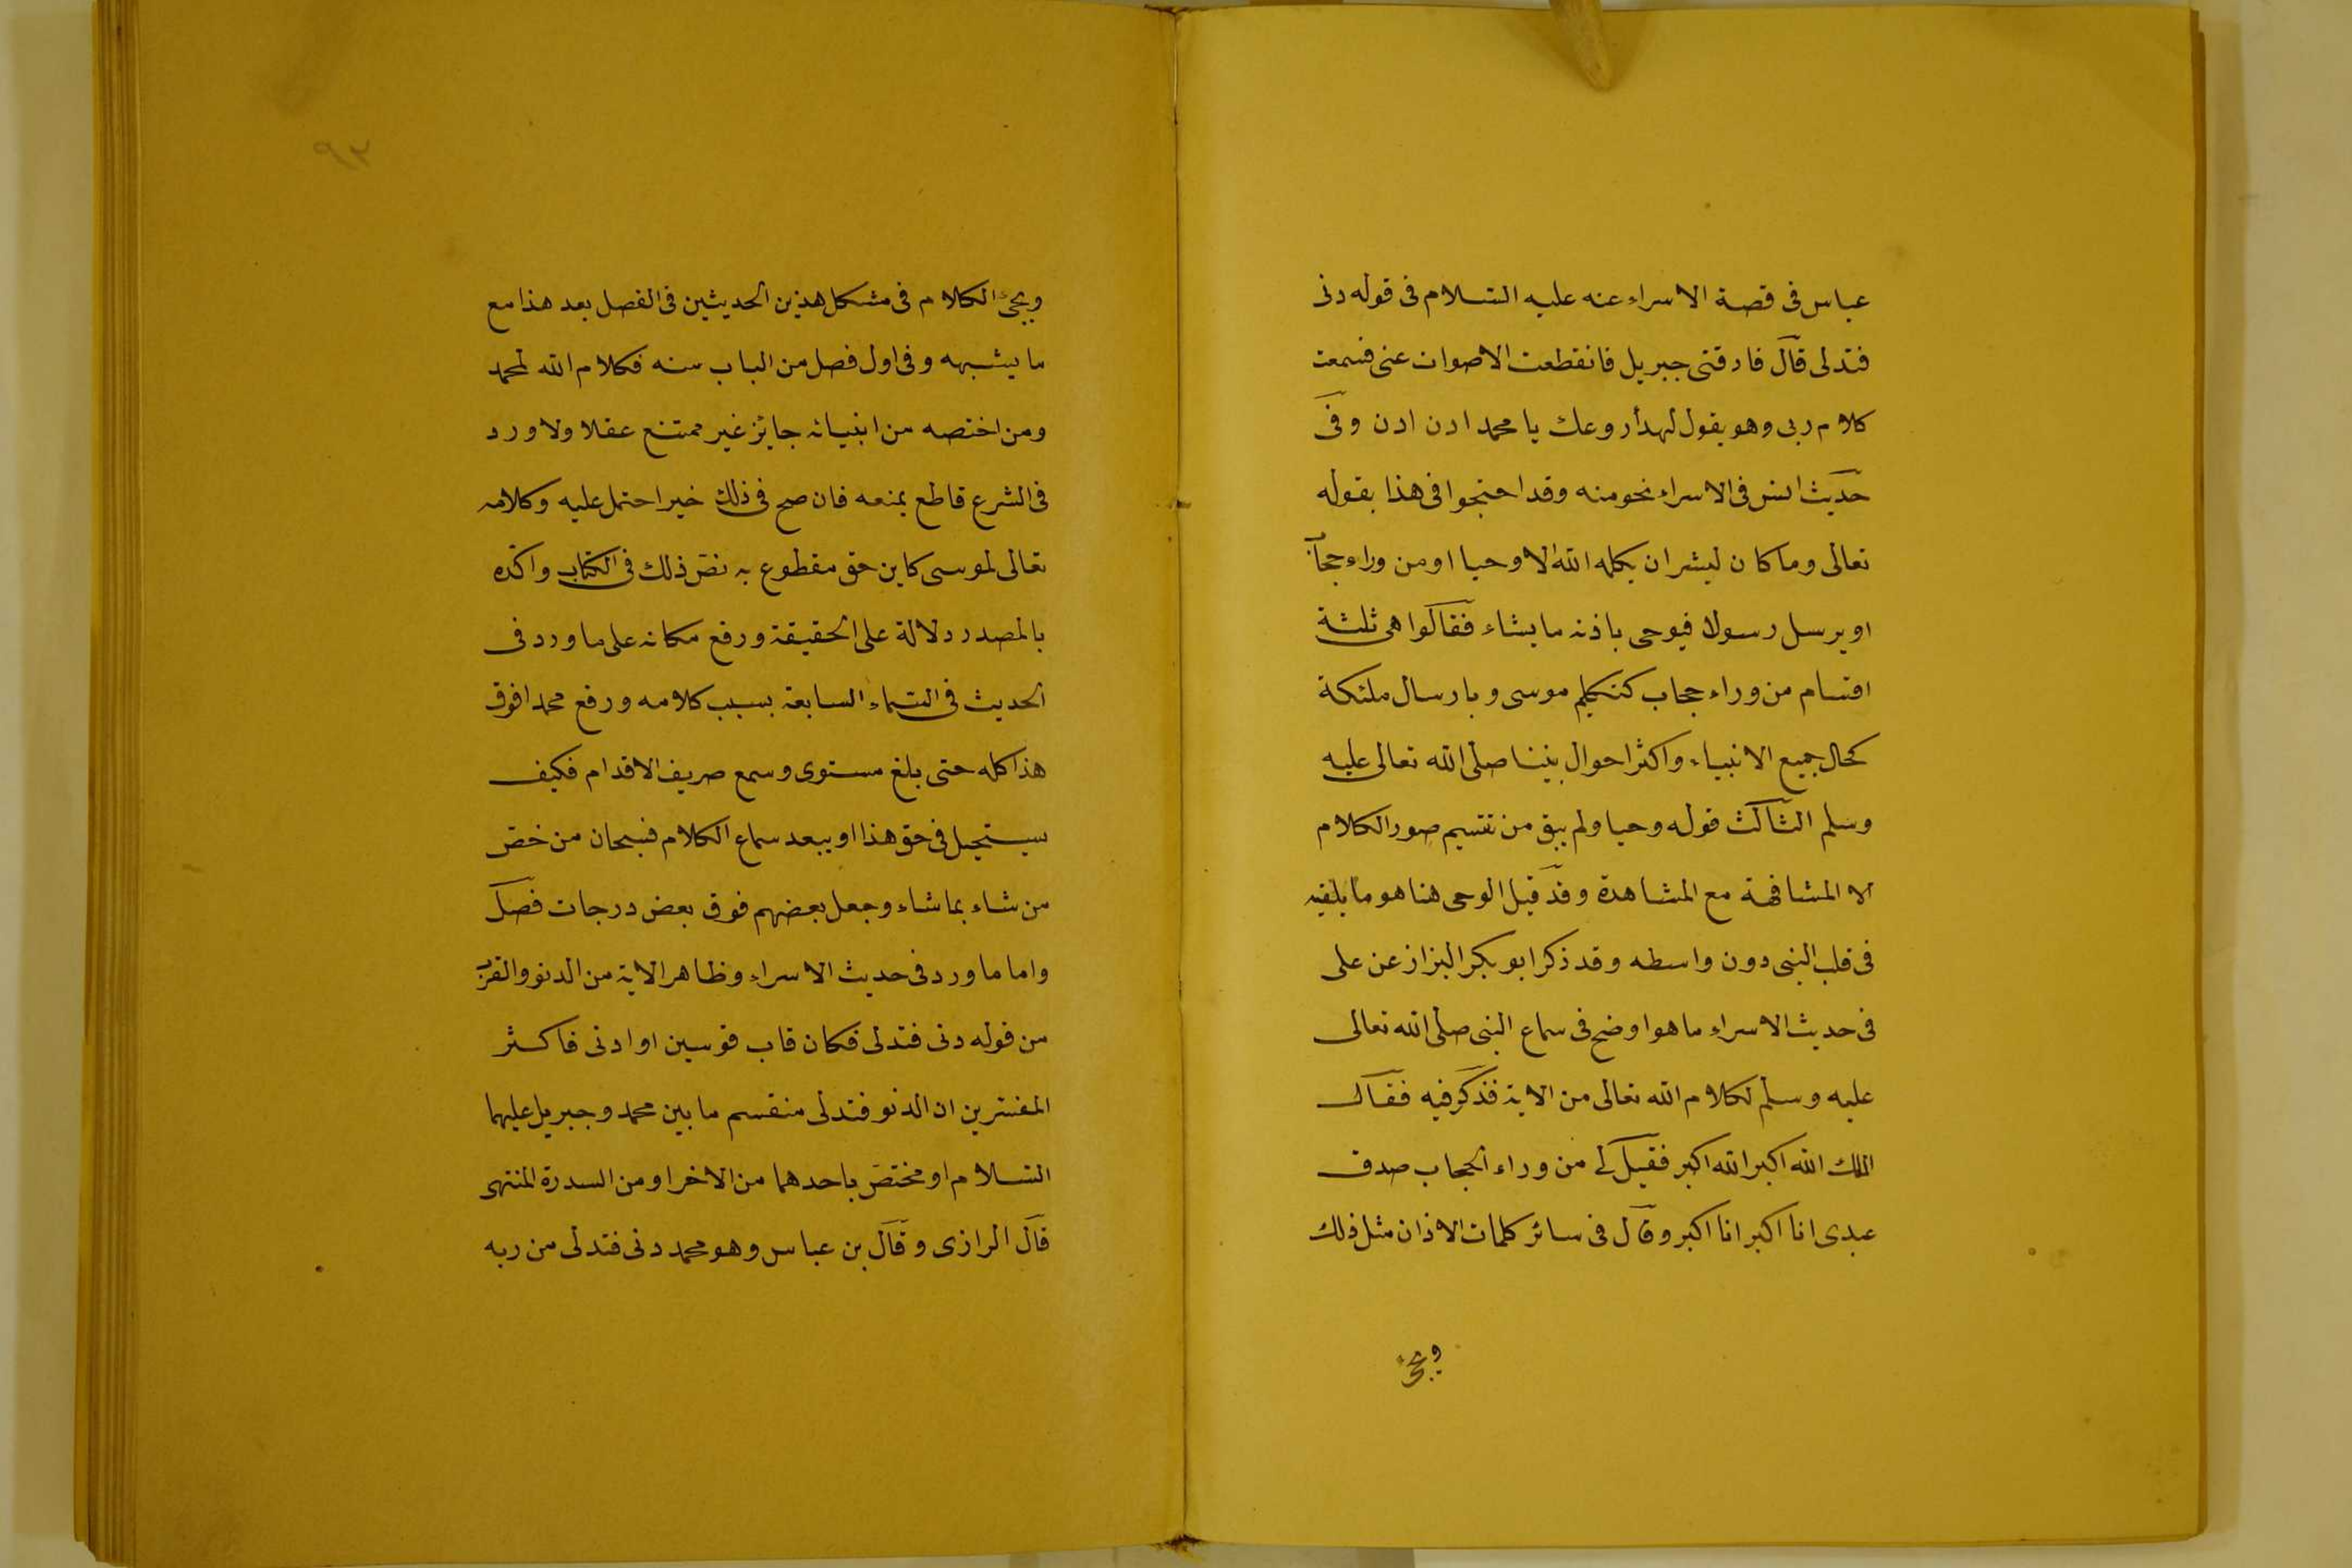 عباس فى قصة الاسراء عنه عليه السلام فى قوله دنى
فتدلى قال فارقنى جبريل فانقطعت الاصوات عنى فسمعت
كلام ربى وهو يقول لهدأ روعك يا محمد ادن ادن وفى
حديث انس فى الاسراء نحو منه وقد احتجوا فى هذا بقوله
تعالى وما كان لبشر ان يكلمه الله الا وحيا او من وراء حجاب
او يرسل رسولا فيوحى باذنه ما يشاء فقالوا هى ثلثة
اقسام من وراء حجاب كتكليم موسى وبارسال ملئكة
كحال جميع الانبياء واكثر احوال نبينا صلى الله تعالى عليه
وسلم الثالث قوله وحيا ولم يبق من تقسيم صور الكلام
الا المشافهة مع المشاهدة وقد قيل الوحى هنا هو ما يلقيه
فى قلب النبى دون واسطه وقد ذكر ابو بكر البزاز عن على
فى حديث الاسراء ما هو اوضح فى سماع النبى صلى الله تعالى
عليه وسلم لكلام الله تعالى من الاية فذكر فيه فقال
الملك الله اكبر الله اكبر فقيل لى من وراء الحجاب صدق
عبدى انا اكبر انا اكبر وقال فى سائر كلمات الاذان مثل ذلك
ويجئ
٩٣
ويجئ الكلام فى مشكل هذين الحديثين فى الفصل بعد هذا مع
ما يشبهه وفى اول فصل من الباب منه فكلام الله لمحمد
ومن اختصه من انبيائه جايز غير ممتنع عقلا ولا ورد
فى الشرع قاطع يمنعه فان صح فى ذلك خير احتمل عليه وكلامه
تعالى لموسى كاين حق مقطوع به نص ذلك فى الكتاب واكده
بالمصدر دلالة على الحقيقة ورفع مكانه على ما ورد فى
الحديث فى السماء السابعة بسبب كلامه ورفع محمد افوق
هذا كله حتى بلغ مستوى وسمع صريف الاقدام فكيف
يستحيل فى حق هذا او يبعد سماع الكلام فسبحان من خص
من شاء بما شاء وجعل بعضهم فوق بعض درجات فصل
واما ما ورد فى حديث الاسراء وظاهر الاية من الدنو والقرب
من قوله دنى فتدلى فكان قاب قوسين او ادنى فاكثر
المفسرين ان الدنو فتدلى منقسم ما بين محمد وجبريل عليهما
السلام او مختص باحدهما من الاخر او من السدرة المنتهى
قال الرازى وقال بن عباس وهو محمد دنى فتدلى من ربه